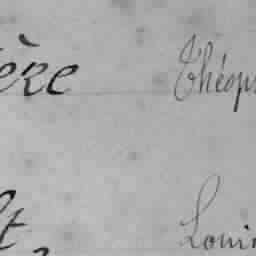 ère Théop
lt Louis